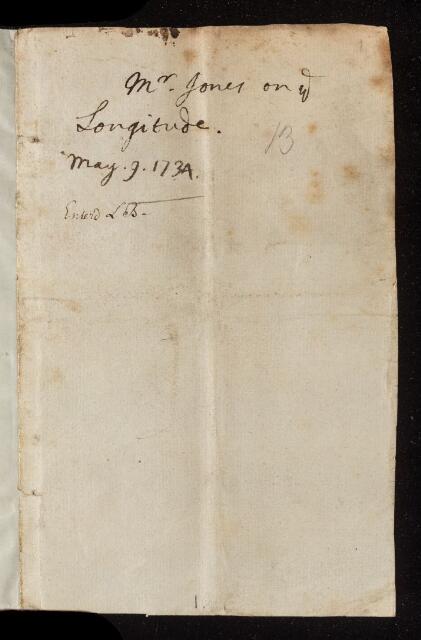 Mr. Jones on ye
Longitude.
13
May. 9. 1734.
Enterd LB-